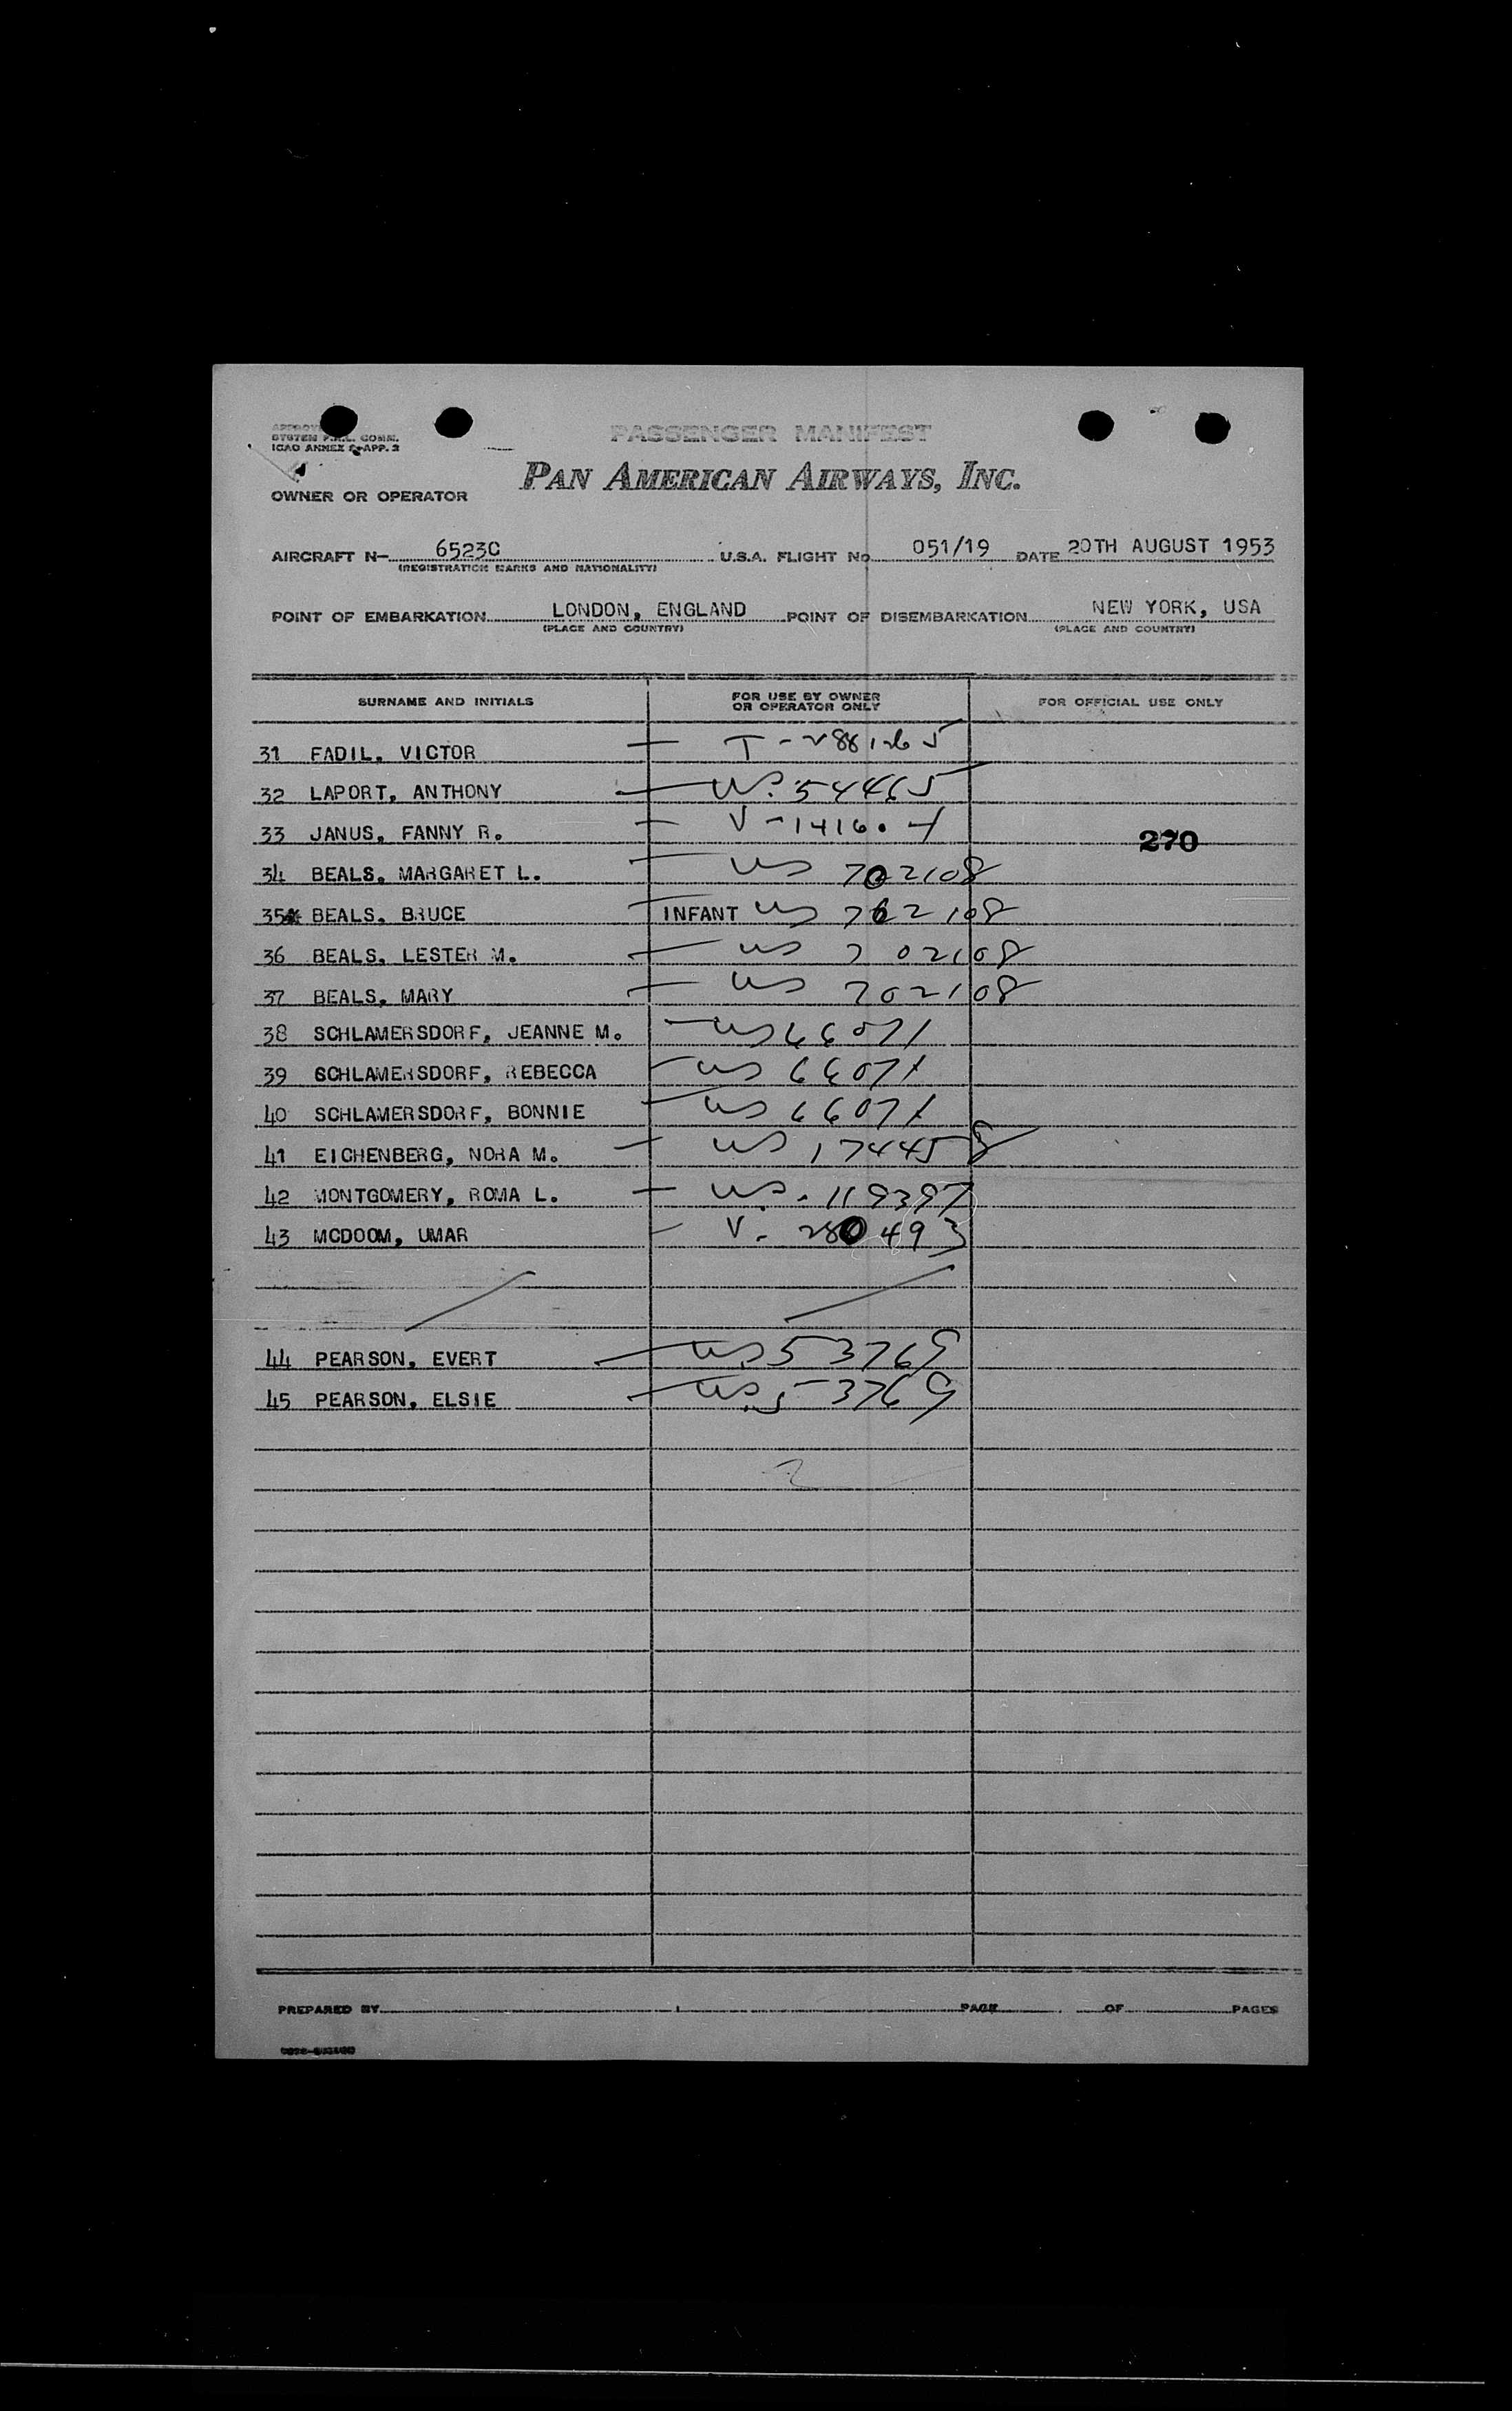 PASSENGER MANIFEST
SYSTEM F.A.L. COMM.
ICAO ANNEX 9-APP. 2
PAN AMERICAN AIRWAYS, INC.
OWNER OR OPERATOR
AIRCRAFT N- 6523C U.S.A. FLIGHT No 051/19 DATE 20TH AUGUST 1953
(REGISTRATION MARKS AND NATIONALITY)
POINT OF EMBARKATION LONDON, ENGLAND POINT OF DISEMBARKATION NEW YORK, USA
(PLACE AND COUNTRY) (PLACE AND COUNTRY)
SURNAME AND INITIALS FOR USE BY OWNER OR OPERATOR ONLY FOR OFFICIAL USE ONLY
31 FADIL, VICTOR — T-288126 5
32 LAPORT, ANTHONY — US. 54465
33 JANUS, FANNY R. — V-1416
270
34 BEALS, MARGARET L. — US 702108
35 BEALS, BRUCE — INFANT US 702108
36 BEALS, LESTER M. — US 702108
37 BEALS, MARY — US 702108
38 SCHLAMERSDORF, JEANNE M. — US 66071
39 SCHLAMERSDORF, REBECCA — US 66071
40 SCHLAMERSDORF, BONNIE — US 66071
41 EICHENBERG, NORA M. — US 174458
42 MONTGOMERY, ROMA L. — US. 119397
43 MCDOOM, UMAR — V. 280493
44 PEARSON, EVERT — US 53769
45 PEARSON, ELSIE — US 53769
2
PREPARED BY PAGE OF PAGES